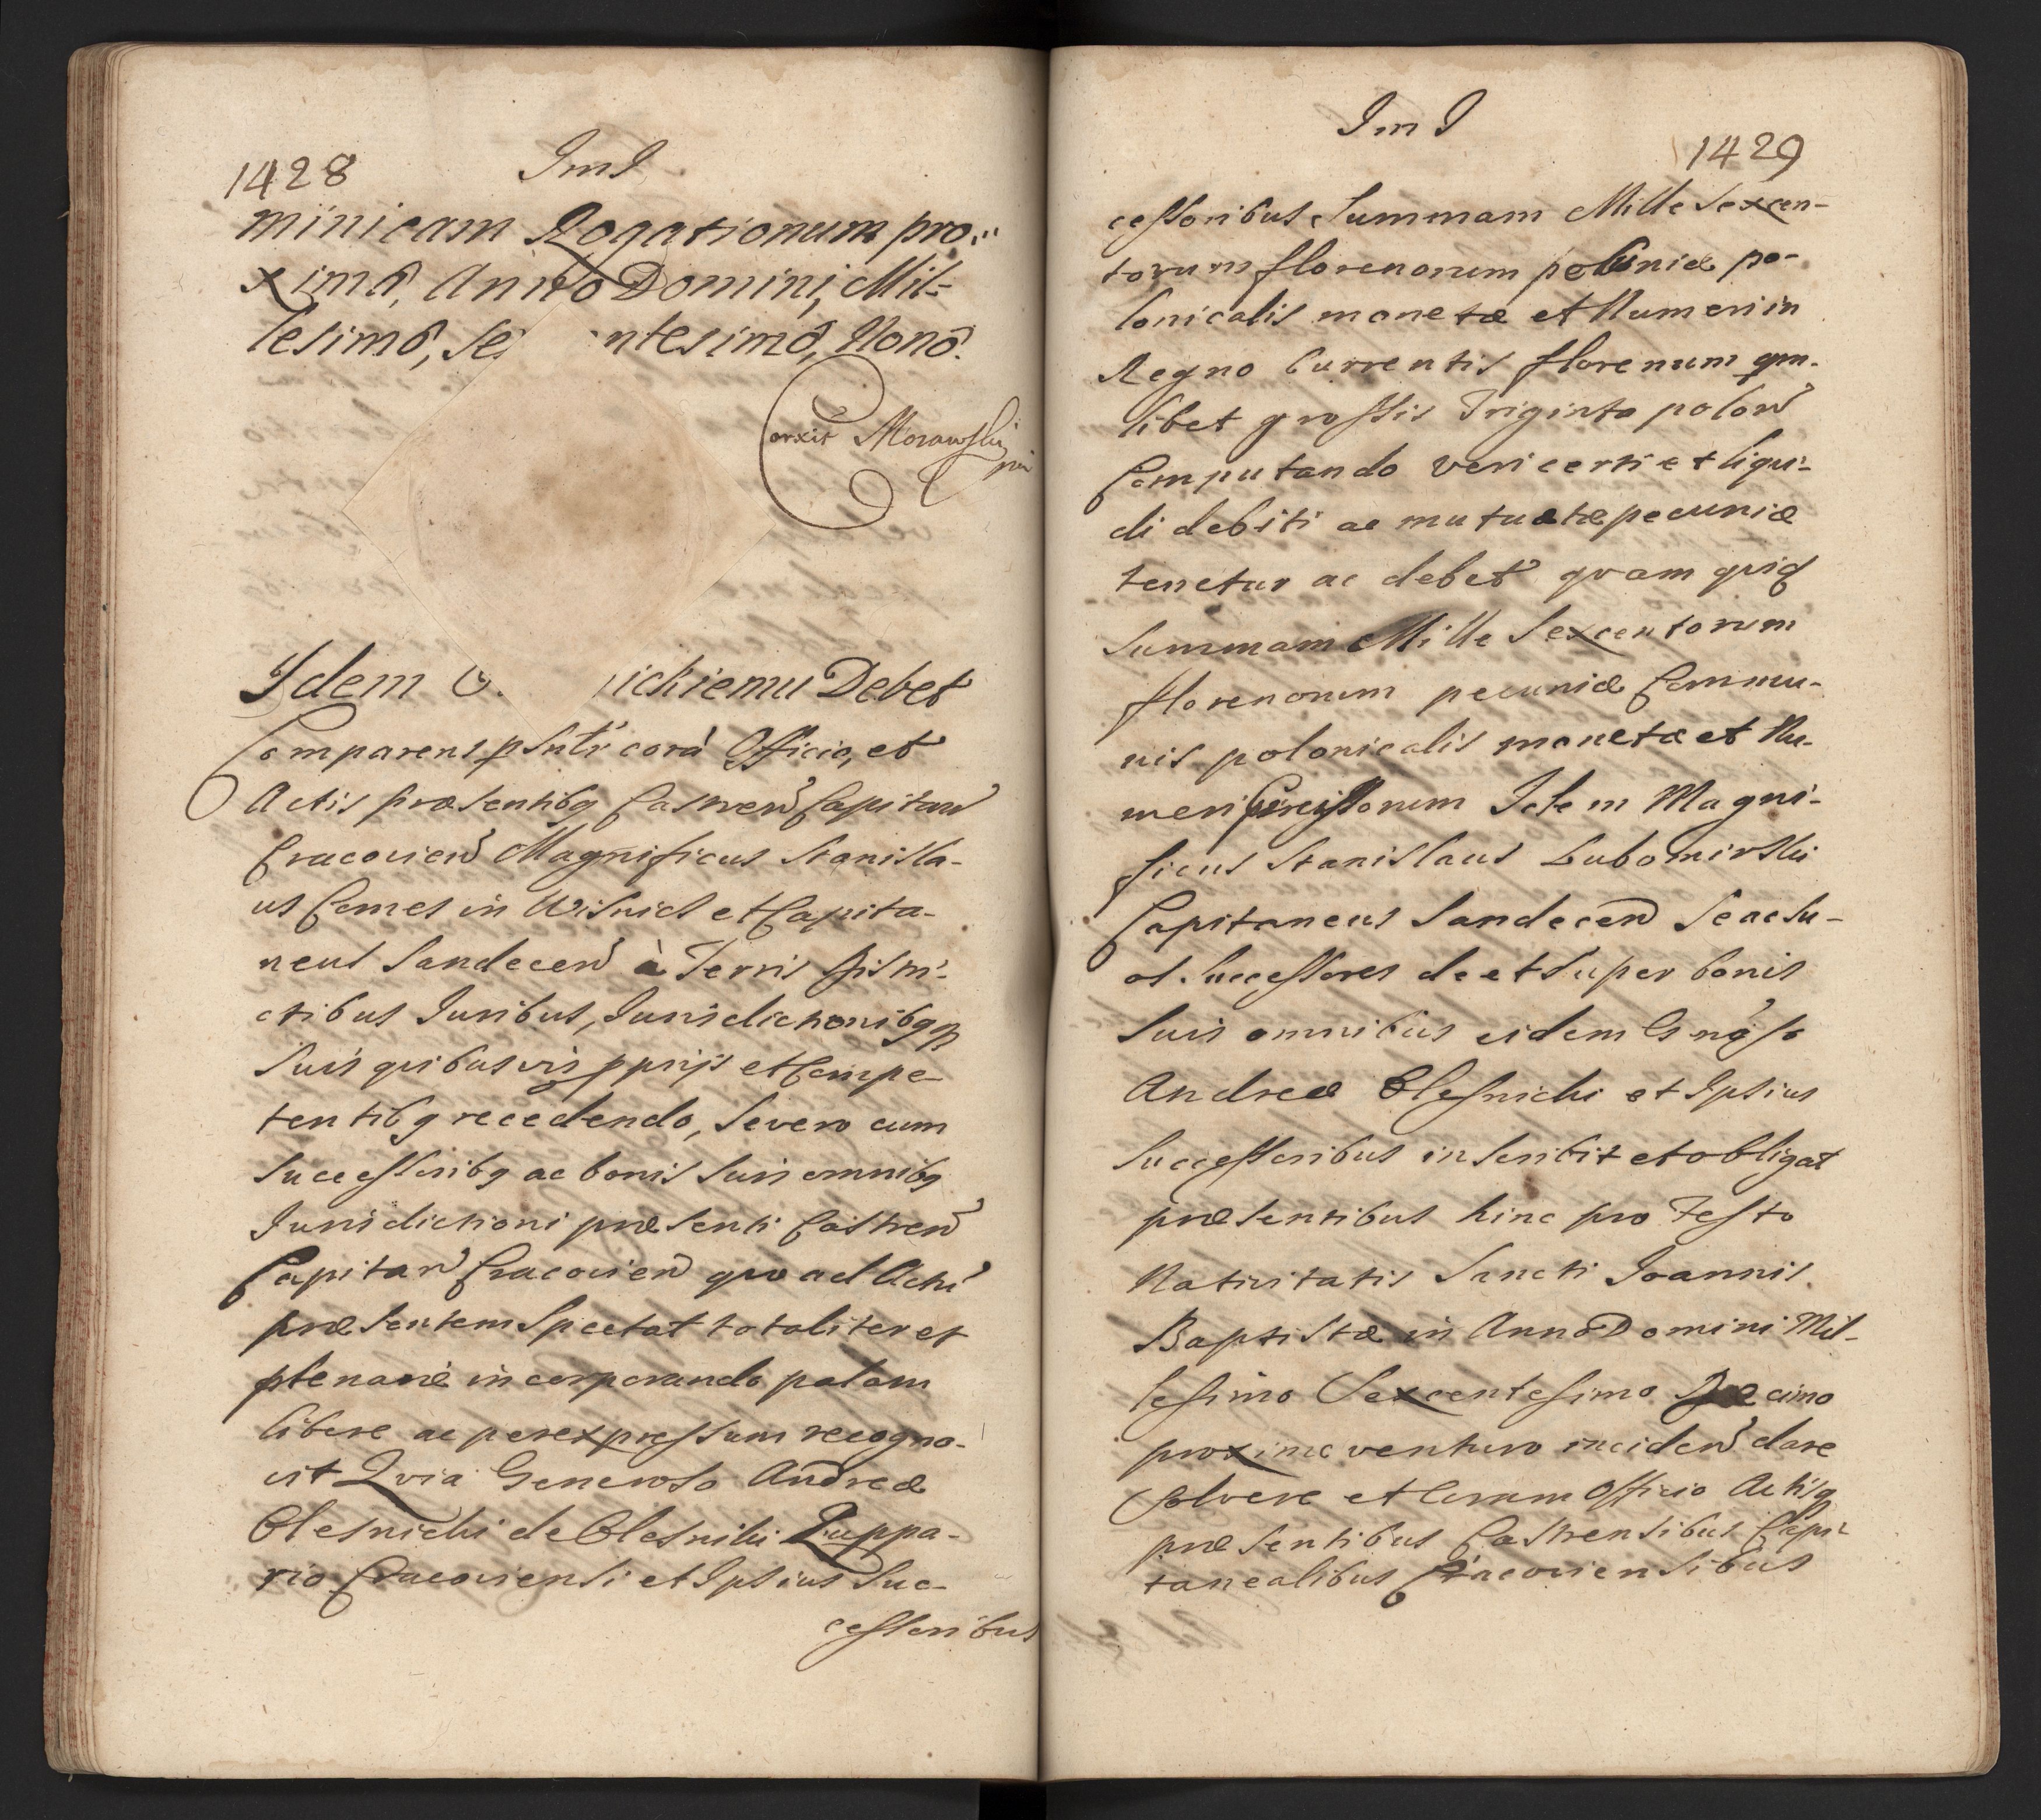 1428
ImI
minicam Rogationum pro„
ximã, Anno Domini, Mil-
lesimõ, Se ntesimõ, Nonõ.
Corxit Morawski
Idem O ickiemu Debet
Comparens psntr corã Officio, et
Actis præsentibq Castren Capitan
Cracovien Magnificus Stanisla-
us Comes in Wisnicz et Capita-
neus Sandecen à Terris Distri-
ctibus Juribus, Jurisdictionibqq
Suis quibusvis pprijs et Compe-
tentibq recedendo, Se vero cum
Successoribq ac bonis Suis omnibq
Jurisdictioni præsenti Castren
Capitan Cracovien quo ad Actũ
præsentem Spectat totaliter et
plenarie incorporando palam
libere ac per expressum recogno-
vit Qvia Generoso Andreæ
Olesnicki de Olesniki Zuppa-
rio Cracoviensi et Ipsius Suc-
cessoribus
ImI
1429
cessoribus Summam Mille Sexcen-
torum florenorum pecuniæ po-
lonicalis monetæ et Numeri in
Regno Currentis florenum qm-
libet grossis Triginta polon
Computando veri certi et liqui-
di debiti ac mutuatæ pecuniæ
tenetur ac debet qvam qvid
Summam Mille Sexcentorum
florenorum pecuniæ Commu-
nis polonicalis monetæ et Nu-
meri Idem Magni-
ficus Stanislaus Lubomirski
Capitaneus Sandecen Se ac Su-
os Successores de et Super bonis
Suis omnibus eidem Gnõso
Andreæ Olesnicki et Ipsius
Successoribus inscribit et obligat
præsentibus hinc pro Festo
Nativitatis Sancti Joannis
Baptistæ in Anno Domini Mil-
lesimo Sexcentesimo Decimo
proxime venturo inciden dare
Solvere et Coram Officio Actisq
præsentibus Castrensibus Capi-
tanealibus Cracoviensibus